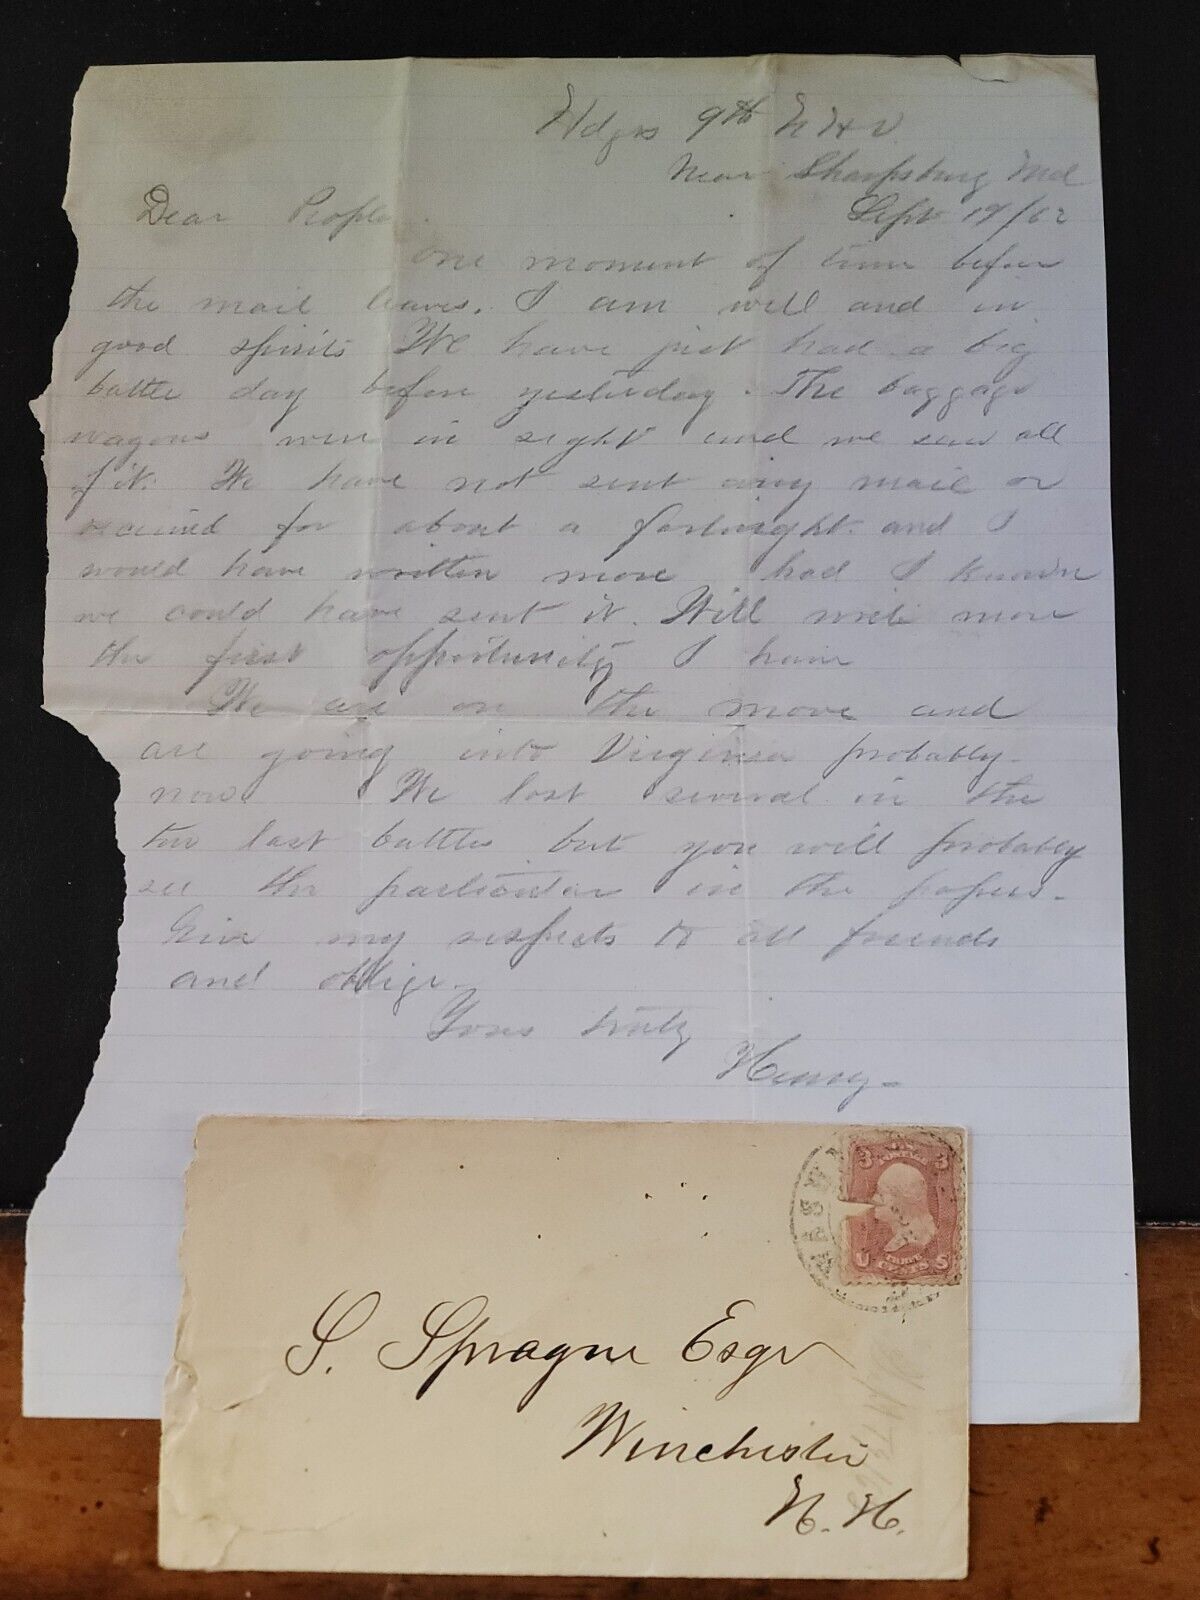 Hdqrs 9th N H V.
Near Sharpsburg Md
Sept 19/62
Dear People.
One moment of time before
the mail leaves. I am well and in
good spirits We have just had a big
battle day before yesterday. The baggage
wagons were in sight and we saw all
of it. We have not sent any mail or
received for about a fortnight and I
would have written more had I known
we could have sent it. Will write more
the first opportunity I have
We are on the move and
are going into Virginia probably
now We lost several in the
two last battles but you will probably
see the particulars in the papers.
Give my respects to all friends
and oblige.
Yours truly
Henry-
3 3
U.S. POSTAGE
THREE
U CENTS S
WASHIN
S. Sprague Esqr
Winchester
N. H.